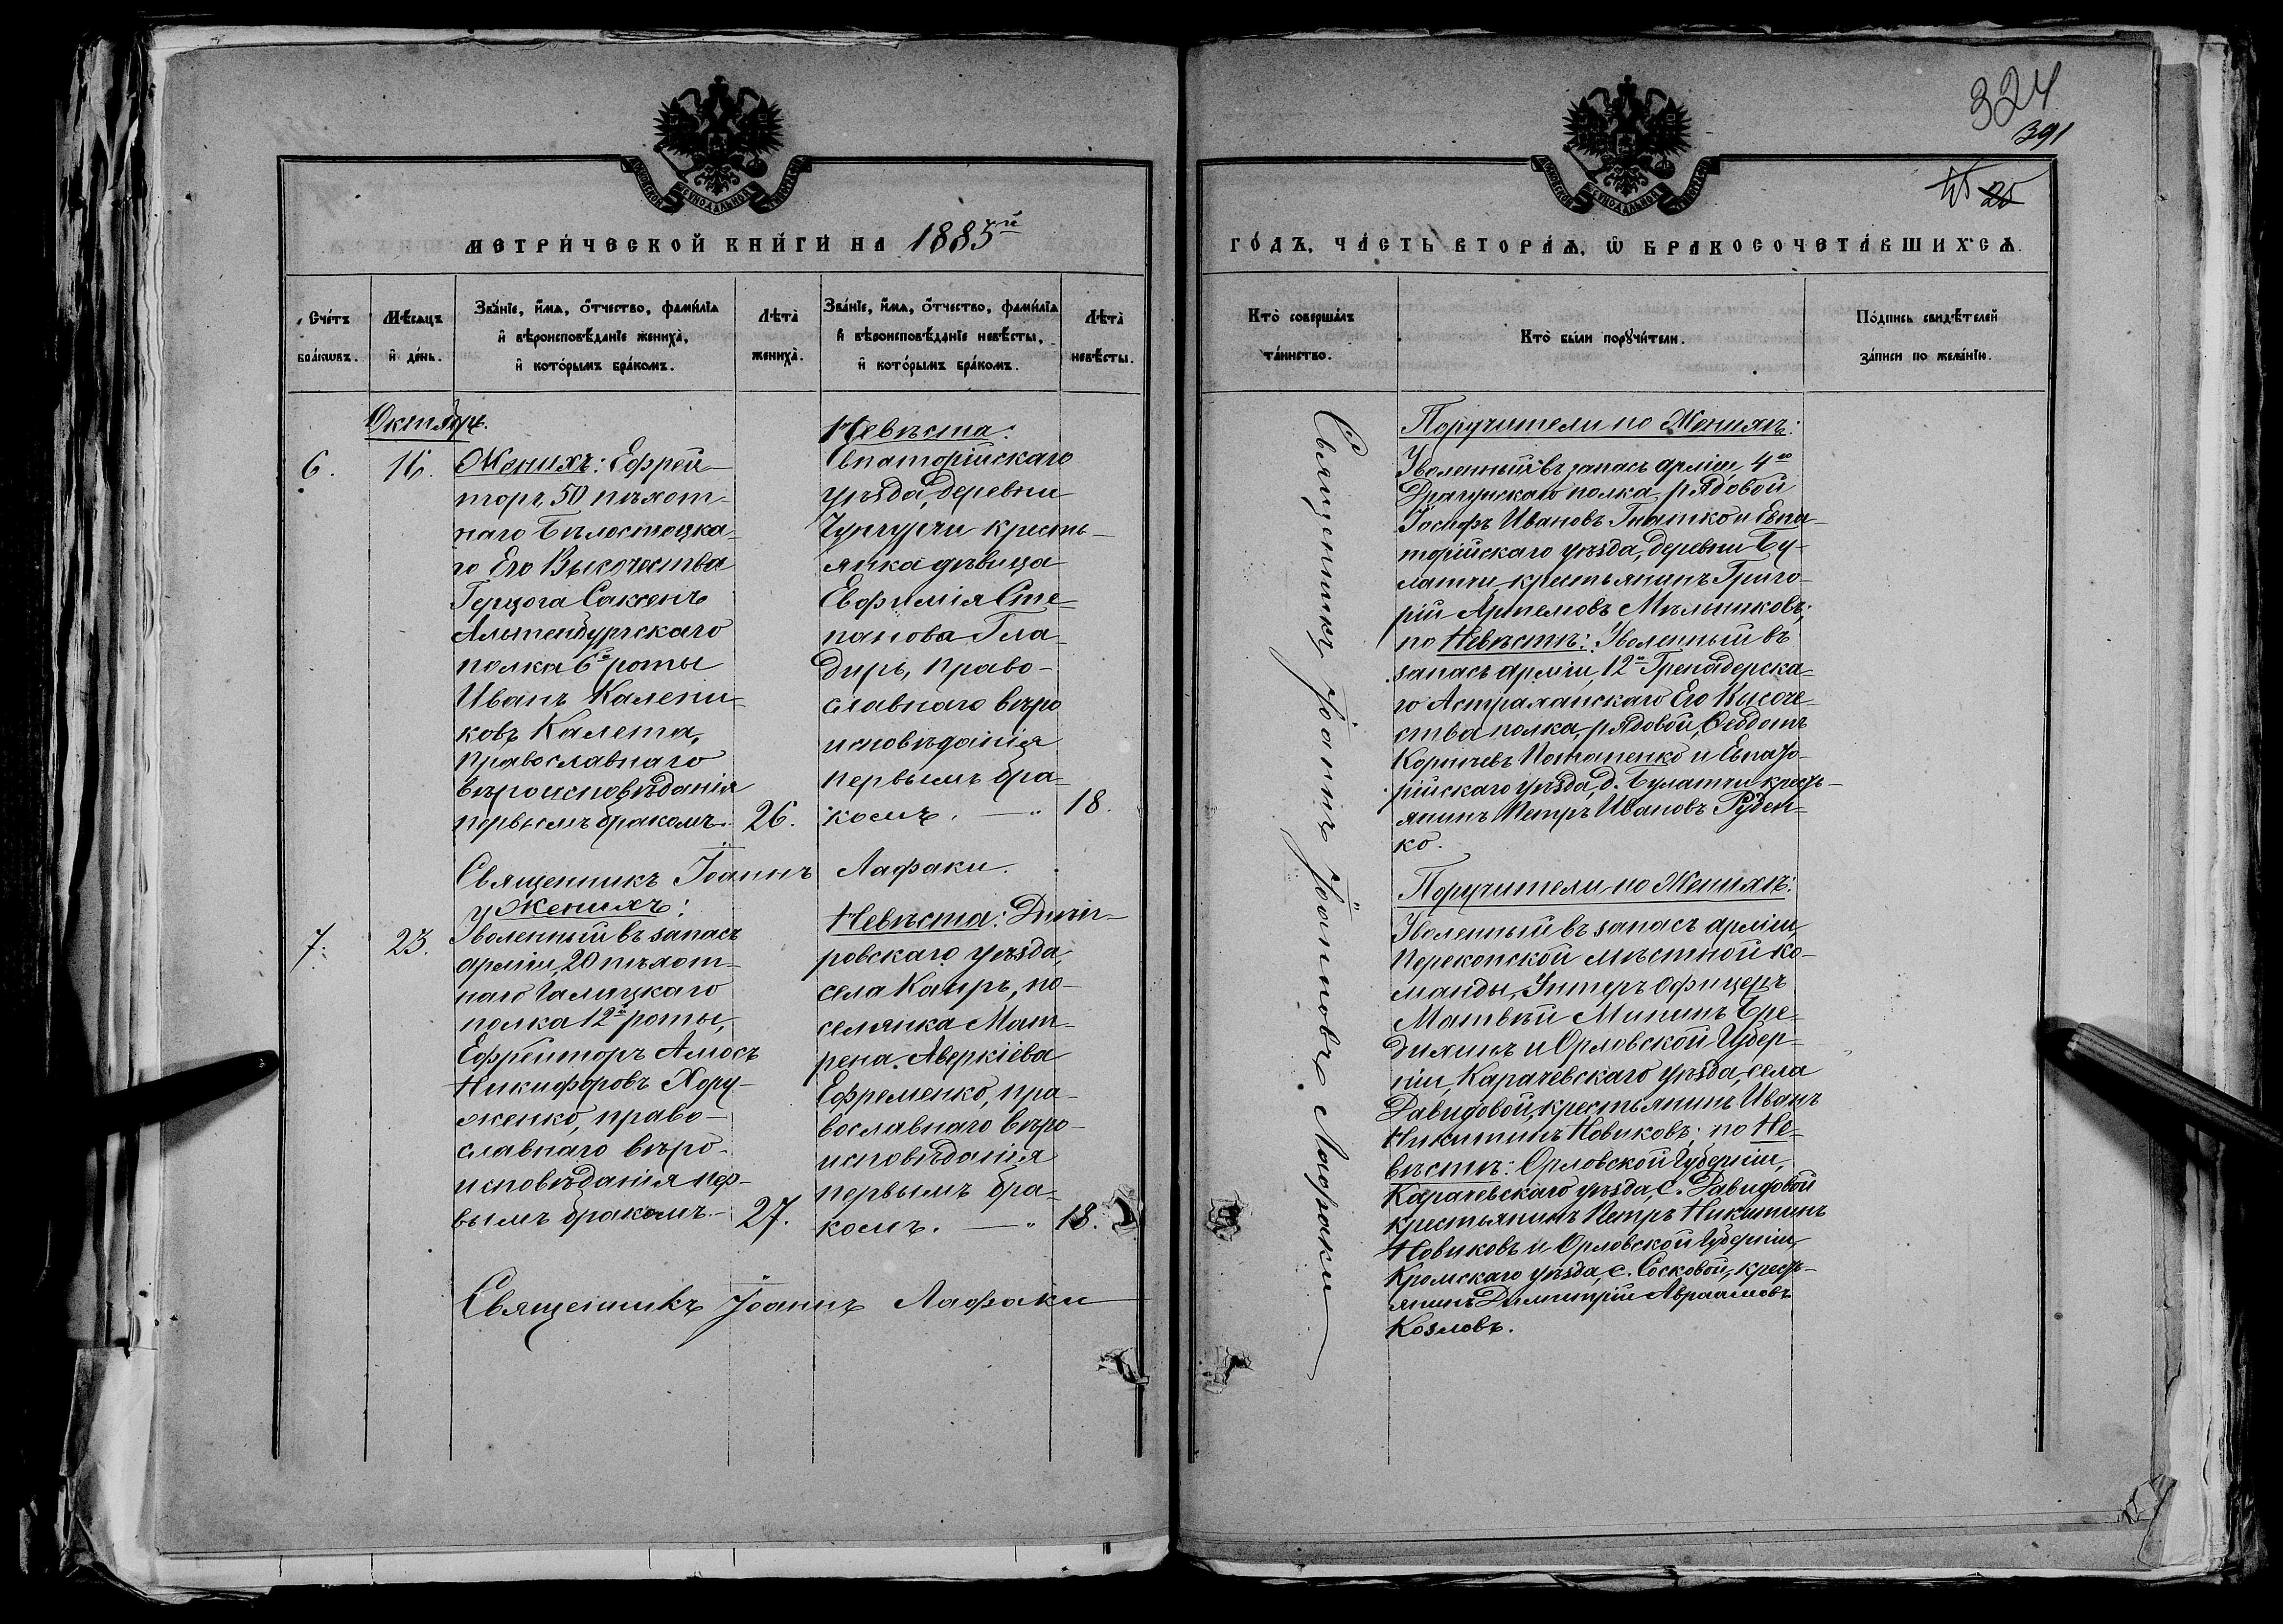 МОСКОВСКОЙ СѴНОДАЛЬНОЙ ТИПОГРАФІИ
МЕТРИ́ЧЕСКОЙ КНИ́ГИ НА 1885й
Сче́тъ бра́кѡвъ.
Мѣ́сяцъ и҆ де́нь.
Зва́нїе, и҆́мѧ, ѻ҆́тчество, фами́лїѧ
и҆ вѣроисповѣ́данїе жениха̀,
и҆ кото́рымъ бра́комъ.
Лѣта̀ жениха̀.
Зва́нїе, и҆́мѧ, ѻ҆́тчество, фами́лїѧ
и҆ вѣроисповѣ́данїе невѣ́сты,
и҆ кото́рымъ бра́комъ.
Лѣта̀ невѣ́сты.
Октябрь.
6.
16.
Женихъ: Ефрей-
торъ 50 пѣхот-
наго Бѣлостоцка-
го Его Высочества
Герцога Саксенъ
Альтенбургскаго
полка 6й роты
Иванъ Калени-
ковъ Калета,
православнаго
вѣроисповѣданія
первымъ бракомъ.
26.
Невѣста:
Евпаторійскаго
уѣзда, деревни
Чунгурчи кресть-
янка дѣвица
Евфимія Сте-
панова Гла-
дирь, право-
славнаго вѣро
исповѣданія
первымъ бра-
комъ. — "
18.
Священникъ Іоаннъ Лафаки.
7.
23.
Женихъ:
Уволенный въ запасъ
арміи, 20 пѣхот-
наго Галицкаго
полка 12й роты,
Ефрейторъ Амосъ
Никифоровъ Хору-
женко, право-
славнаго вѣро-
исповѣданія пер-
вымъ бракомъ.-
27.
Невѣста: Днѣп-
ровскаго уѣзда,
села Каиръ, по-
селянка Мат-
рена Аверкіева
Ефременко, пра-
вославнаго вѣро-
исповѣданія
первымъ бра-
комъ. — "
18.
Священникъ Іоаннъ Лафаки
324
391
25
МОСКОВСКОЙ СѴНОДАЛЬНОЙ ТИПОГРАФІИ
ГО́ДЪ, ЧА́СТЬ ВТОРА́Ѧ, Ѡ҆ БРАКОСОЧЕТА́ВШИХСѦ.
Кто̀ соверша́лъ
та́инство.
Кто̀ бы́ли порꙋчи́тели.
По́дпись свидѣ́телей
за́писи по жела́нїю.
Священникъ Іоаннъ Іоанновъ Лафаки
Поручители по Женихѣ:
Уволенный въ запасъ арміи 4го
Драгунскаго полка, рядовой
Іосифъ Ивановъ Гнатко и Евпа-
торійскаго уѣзда, деревни Бу-
латчи крестьянинъ Григо-
рій Артемовъ Мѣльниковъ;
по Невѣстѣ: Уволенный въ
запасъ арміи, 12го Гренадерска-
го Астраханскаго Его Высоче-
ства полка, рядовой, Феодотъ
Корнѣевъ Потапенко и Евпато-
рійскаго уѣзда, д. Булатчи кресть-
янинъ Петръ Ивановъ Руден-
ко.
Поручители по Женихѣ:
Уволенный въ запасъ арміи,
Перекопской мѣстной ко-
манды, Унтеръ офицеръ
Матвѣй Мининъ Бре-
дихинъ и Орловской Губер-
ніи, Карачевскаго уѣзда, села
Давидовой, крестьянинъ Иванъ
Никитинъ Новиковъ; по Не-
вѣстѣ: Орловской Губерніи,
Карачевскаго уѣзда, с. Давидовой
крестьянинъ Петръ Никитинъ
Новиковъ и Орловской Губерніи,
Кромскаго уѣзда, с. Сосковой, кресть-
янинъ Димитрій Авраамовъ
Козловъ.